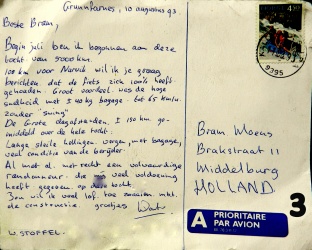 Grunnfarnes, 10 augustus 93.
Beste Bram,
Begin juli ben ik begonnen aan deze
tocht van 5000 km.
100 km voor Narvik wil ik je graag
berichten dat de fiets zich 100% heeft
gehouden. Groot voordeel was de hoge
snelheid met ± 40 kg bagage. tot 65 km/u.
zonder "swing"
De Grote dagafstanden. ± 130 km. ge-
middeld over de hele tocht.
Lange steile hellingen. vergen, met bagage,
veel conditie van de berijder.
Al met al. met recht een volwaardige
randonneur. die veel voldoening
heeft gegeven op de tocht.
Zou wil ik veel lof toe zwaaien mbt.
de constructie groetjes
W. STOFFEL.
Bram Moens
Brakstraat 11
Middelburg
HOLLAND
A PRIORITAIRE
PAR AVION
3
9395